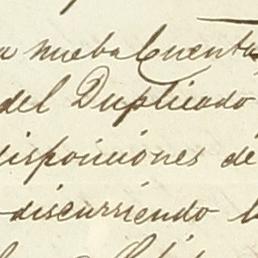 a nueba Cuenta
del Duplicado
disposiciones de
discurriendo l